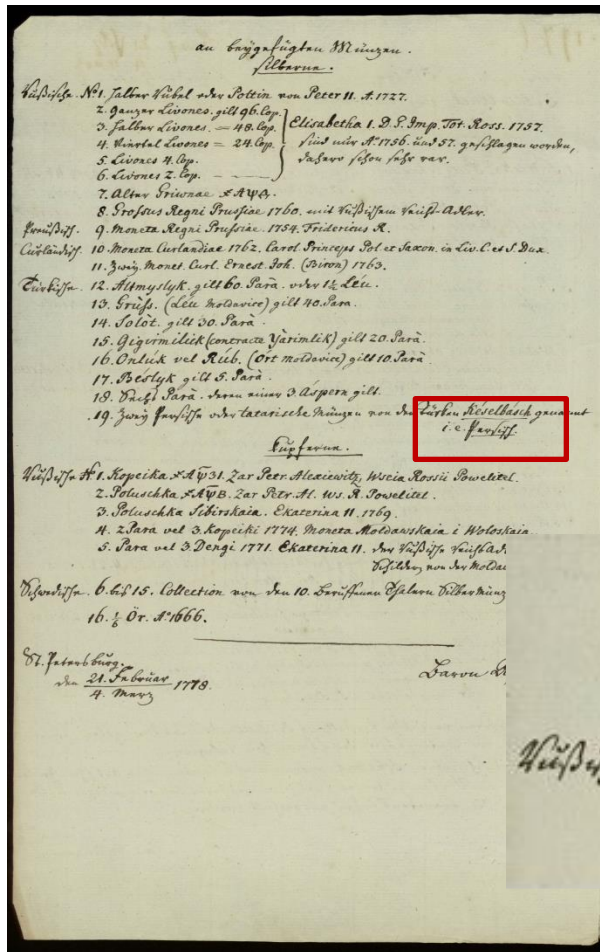 an beygefügten Münzen.
silberne.
Rußische. No 1. halber Rubel oder Poltin von Peter II. A. 1727.
2. ganzer Livones. gilt 96. Cop.
3. halber Livones. = 48. Cop.
4. Viertel Livones = 24. Cop.
5. Livones 4. Cop.
6. Livones 2. Cop.
Elisabetha I. D. G. Imp. Tot. Ross. 1757.
sind nur Ao. 1756. und 57. geschlagen worden,
dahero schon sehr rar.
7. Alter Griwnae
8. Grossus Regni Prussiae 1760. mit Rußischem Reichs-Adler.
Preußisch. 9. Moneta Regni Prussiae. 1754. Fridericus R.
Curländisch. 10 Moneta Curlandiae 1762. Carol Princeps Pol. et Saxon. in Liv. C. et S. Dux.
11. Zwey Monet. Curl. Ernest. Joh. (Biron) 1763.
Türkische. 12. Altmyslyk. gilt 60. Parà. oder 1½ Leu.
13. Grúss. (Léu moldavice) gilt 40. Para.
14. Solòt. gilt 30. Parà.
15. Gigirmilick (contracte Yàrimlik) gilt 20. Parà.
16. Onlúk vel Rúb. (Ort moldavice) gilt 10. Parà.
17. Béslyk gilt 5. Parà.
18. Sechs Parà. deren einer 3. Aspern gilt.
19. Zwey Persische oder tatarische Münzen von den türken Késelbàsch genannt
i. e. Persisch.
Kupferne.
Rußische No 1. Kopeika Zar Petr. Alexiewitz, Wscia Rossii Powelitel.
2. Poluschka Zar Petr. Al. Ws. R. Powelitel.
3. Poluschka Sibirskaia. Ekaterina II. 1769.
4. 2 Para vel 3. Kopeiki 1774. Moneta Moldawskaia i Woloskaia
5. Para vel 3. Dengi 1771. Ekaterina II. der Rußische Reichs
Schilder von der Moldau
Schwedische. 6. bis 15. Collection von den 10. Beruffenen Thalern Silbermünz
16. ⅙ Ör. Ao. 1666.
St. Petersburg.
den 21. Februar / 4. Merz 1778.
Baron